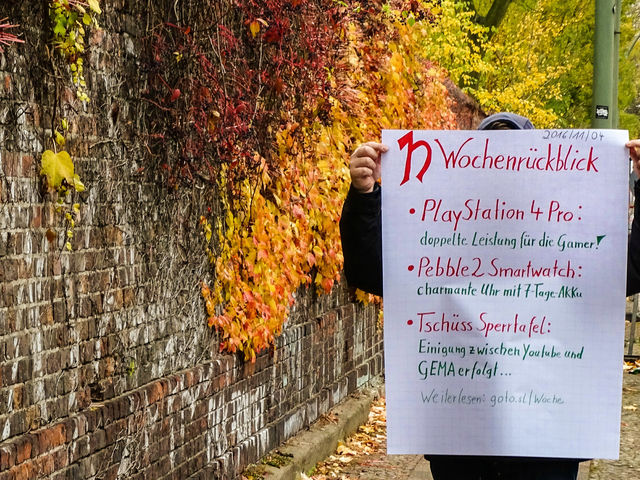 2016/11/04
n Wochenrückblick
• PlayStation 4 Pro:
doppelte Leistung für die Gamer!
• Pebble 2 Smartwatch:
charmante Uhr mit 7-Tage-Akku
• Tschüss Sperrtafel:
Einigung zwischen Youtube und
GEMA erfolgt...
Weiterlesen: goto.sl/Woche